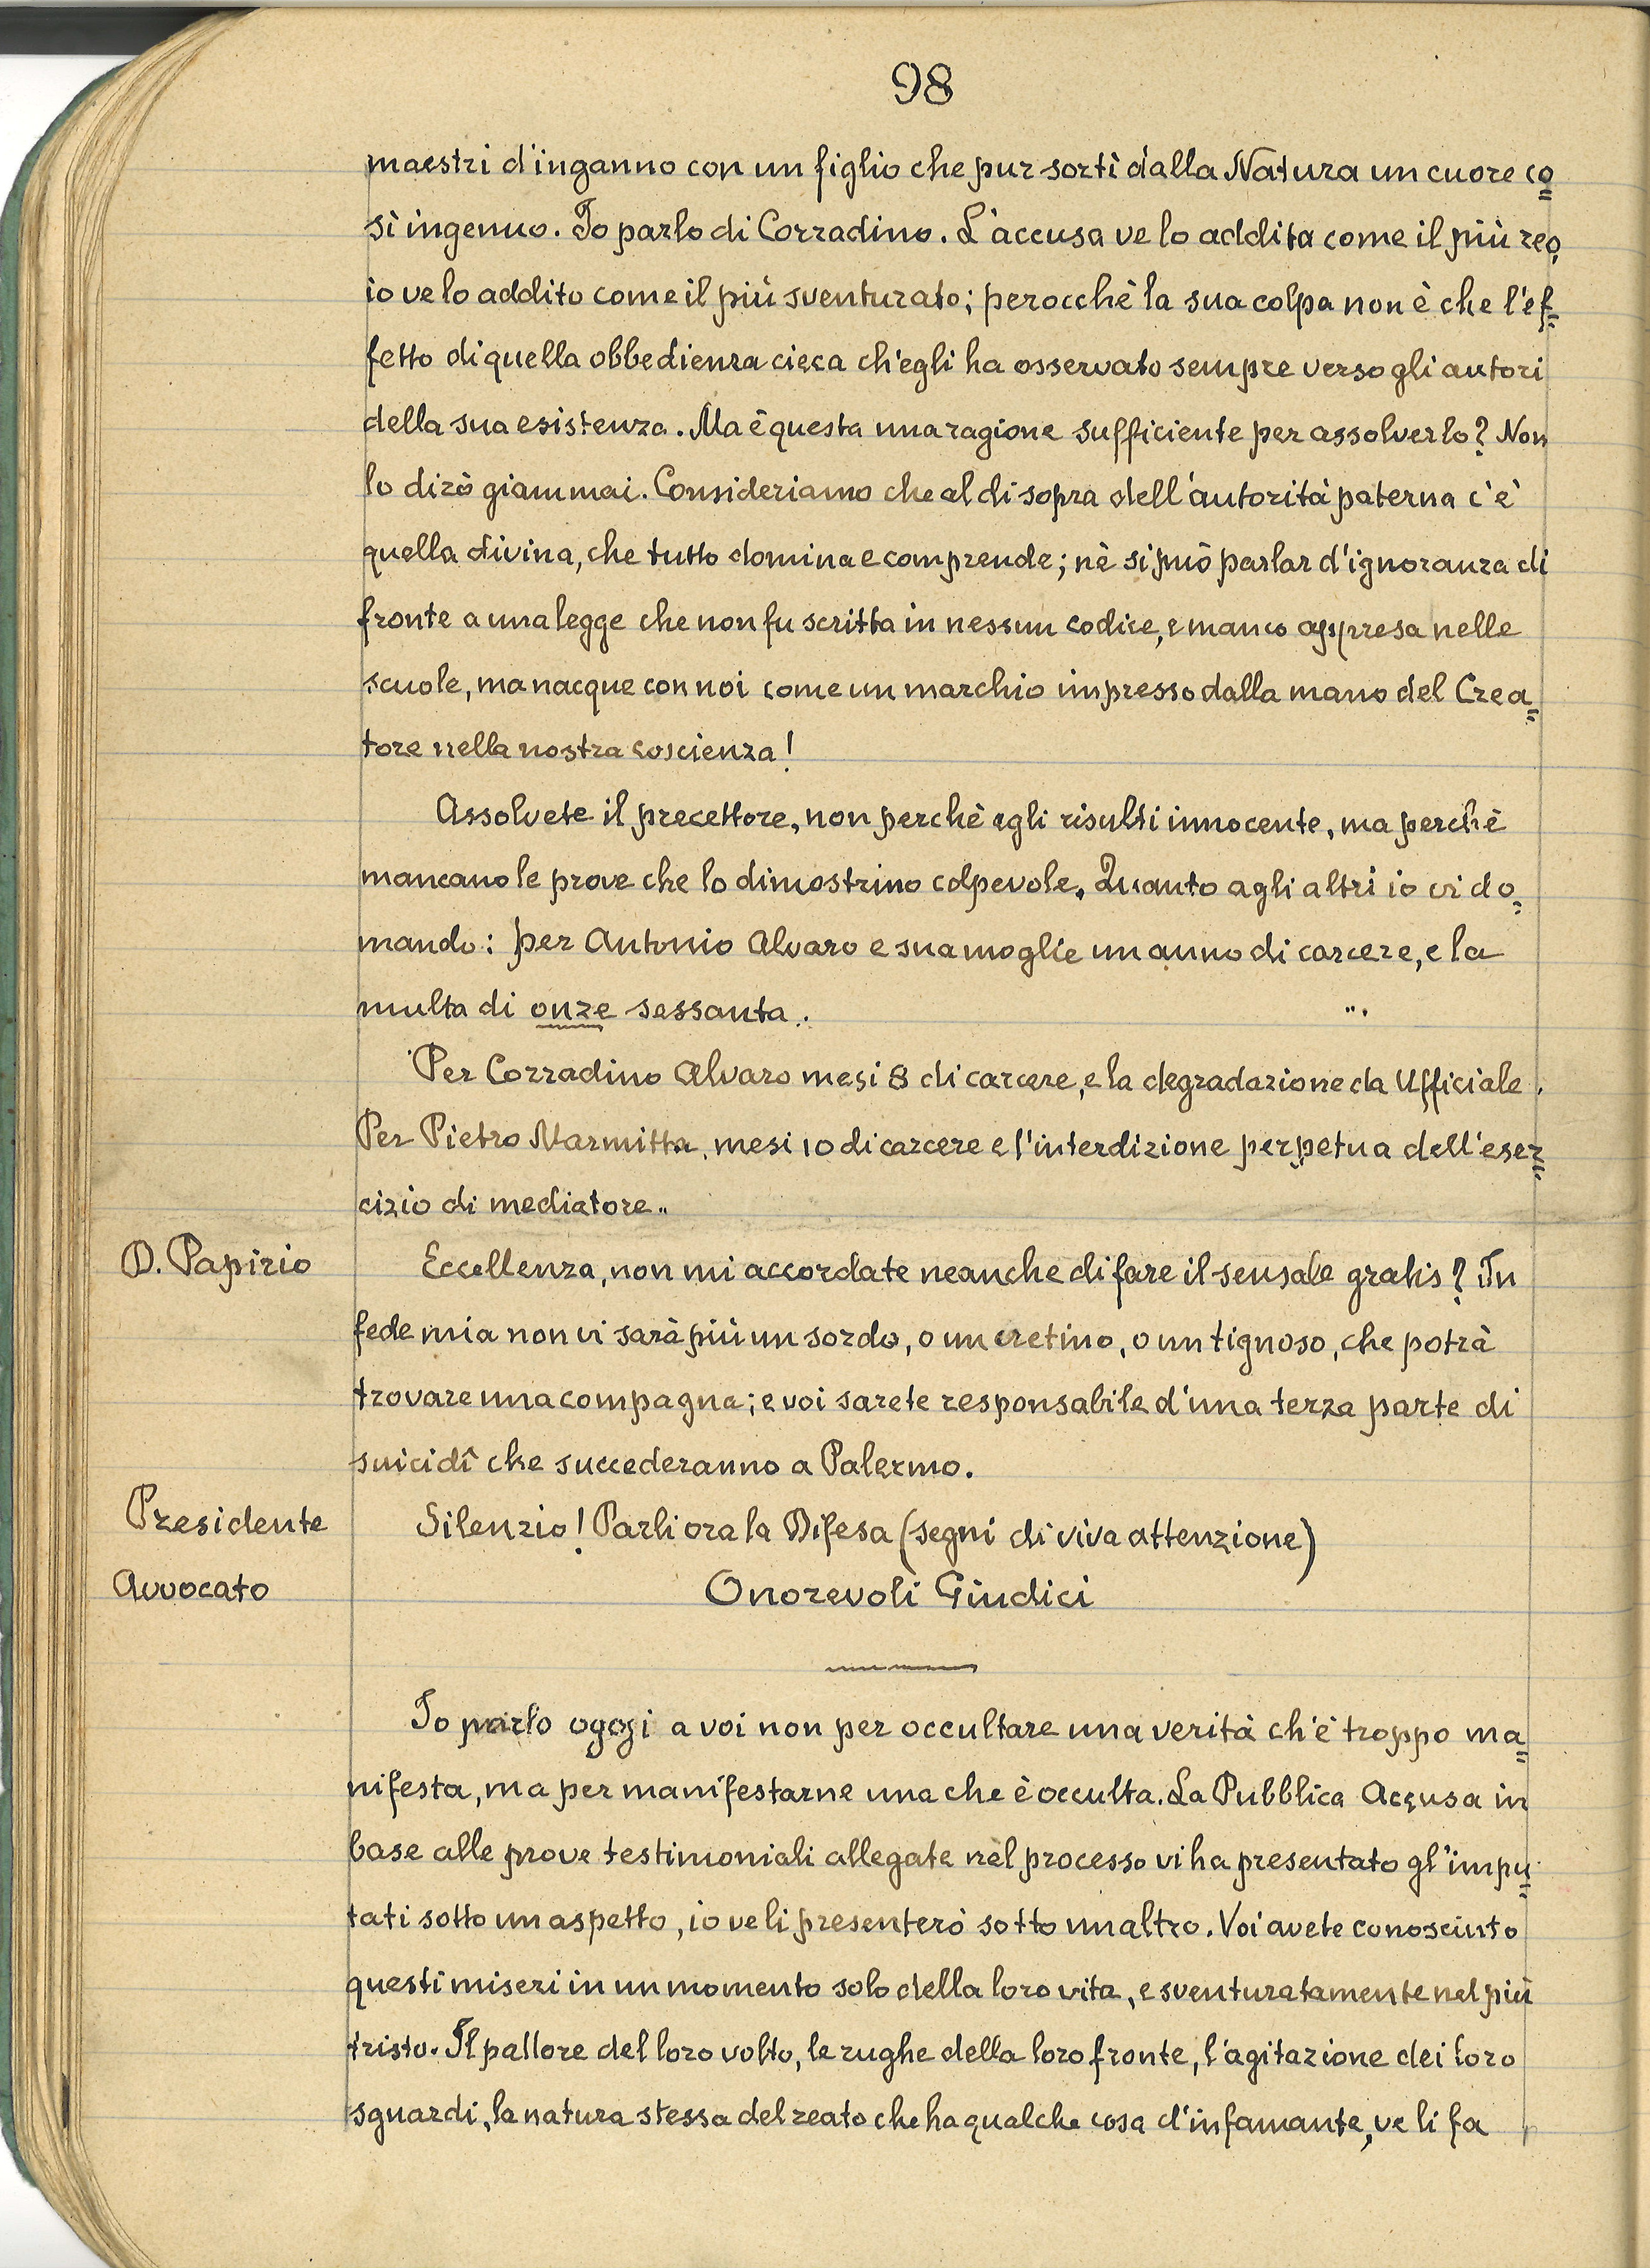 98
maestri d'inganno con un figlio che pur sortì dalla Natura un cuore co=
sì ingenuo. Io parlo di Corradino. L'accusa ve lo addita come il più reo,
io ve lo addito come il più sventurato; perocchè la sua colpa non è che l'ef=
fetto di quella obbedienza cieca ch'egli ha osservato sempre verso gli autori
della sua esistenza. Ma è questa una ragione sufficiente per assolverlo? Non
lo dirò giammai. Consideriamo che al di sopra dell'autorità paterna c'è
quella divina, che tutto domina e comprende; nè si può parlar d'ignoranza di
fronte a una legge che non fu scritta in nessun codice, e manco appresa nelle
scuole, ma nacque con noi come un marchio impresso dalla mano del Crea=
tore nella nostra coscienza!
Assolvete il precettore, non perchè egli risulti innocente, ma perchè
mancano le prove che lo dimostrino colpevole. Quanto agli altri io vi do=
mando: per Antonio Alvaro e sua moglie un anno di carcere, e la
multa di onze sessanta.
Per Corradino Alvaro mesi 8 di carcere, e la degradazione da Ufficiale.
Per Pietro Marmitta, mesi 10 di carcere e l'interdizione perpetua dell'eser=
cizio di mediatore"
D. Papirio Eccellenza, non mi accordate neanche di fare il sensale gratis? In
fede mia non vi sarà più un sordo, o un cretino, o un tignoso, che potrà
trovare una compagna; e voi sarete responsabile d'una terza parte di
suicidî che succederanno a Palermo.
Presidente Silenzio! Parli ora la Difesa (segni di viva attenzione)
Avvocato Onorevoli Giudici
Io parlo oggi a voi non per occultare una verità ch'è troppo ma=
nifesta, ma per manifestarne una che è occulta. La Pubblica Accusa in
base alle prove testimoniali allegate nel processo vi ha presentato gl'impu=
tati sotto un aspetto, io ve li presenterò sotto un altro. Voi avete conosciuto
questi miseri in un momento solo della loro vita, e sventuratamente nel più
tristo. Il pallore del loro volto, le rughe della loro fronte, l'agitazione dei loro
sguardi, la natura stessa del reato che ha qualche cosa d'infamante, ve li fa